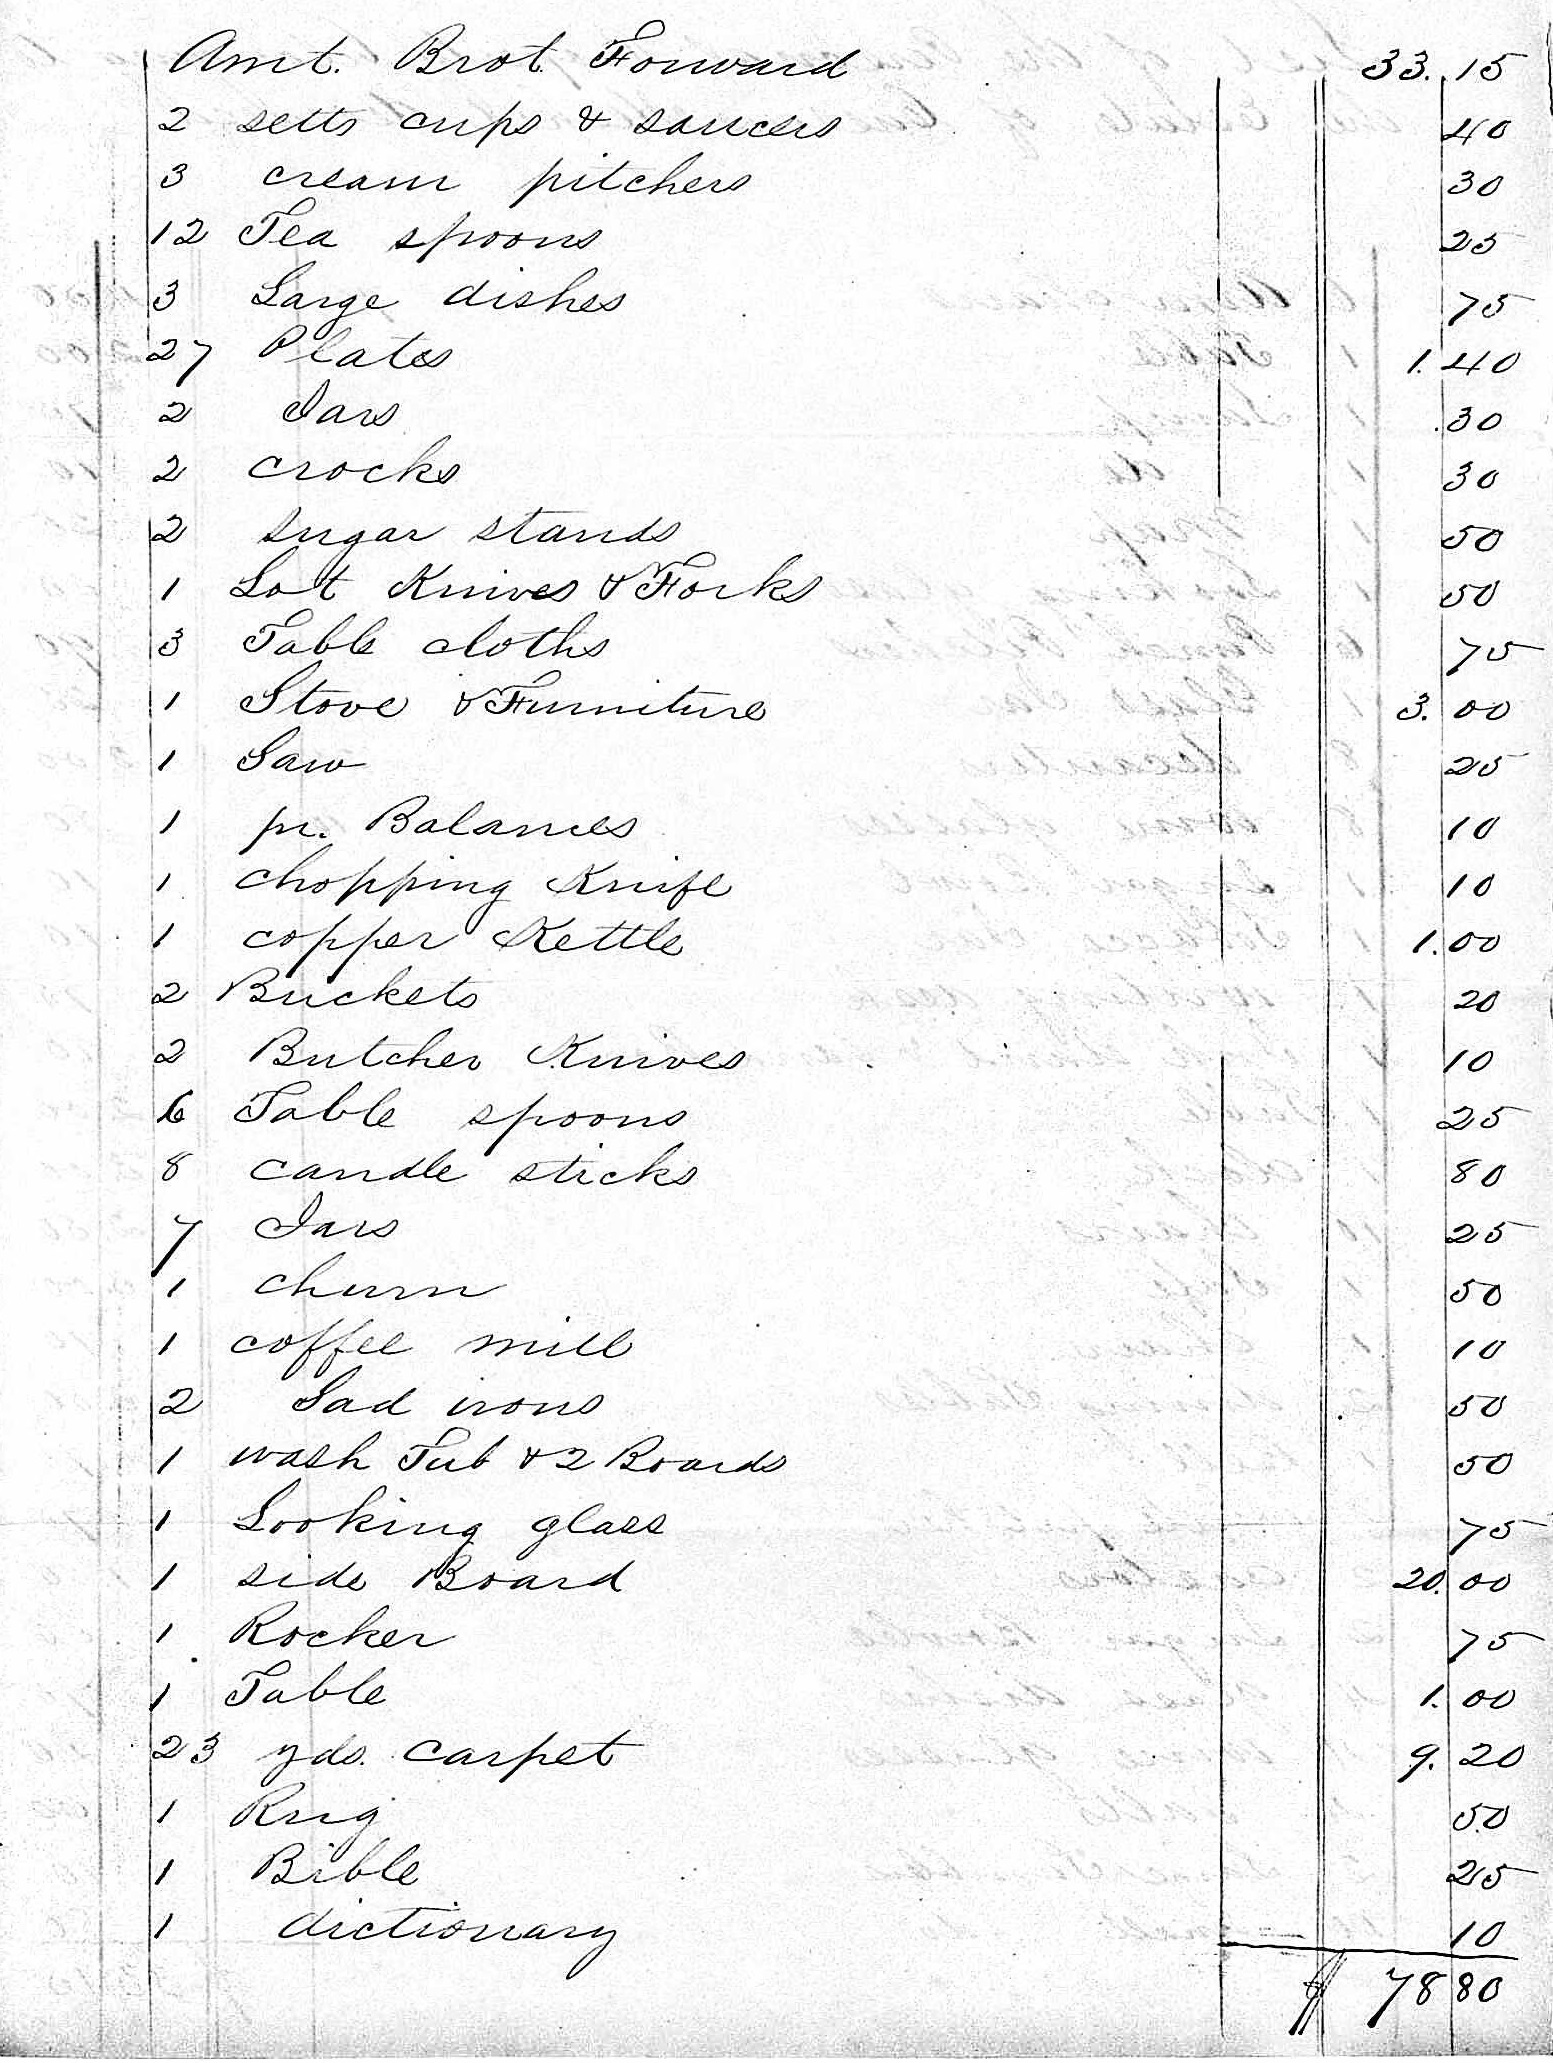 Amt. Brot. Forward 33.15
2 setts cups & saucers 40
3 cream pitchers 30
12 Tea spoons 25
3 Large dishes 75
27 Plates 1.40
2 Jars .30
2 crocks 30
2 sugar stands 50
1 Lot Knives & Forks 50
3 Table cloths 75
1 Stove & Furniture 3.00
1 Saw 25
1 pr. Balances 10
1 chopping Knife 10
1 copper Kettle 1.00
2 Buckets 20
2 Butcher Knives 10
6 Table spoons 25
8 candle sticks 80
7 Jars 25
1 churn 50
1 coffee mill 10
2 Sad irons 50
1 wash Tub & 2 Boards 50
1 Looking glass 75
1 side Board 20.00
1 Rocker 75
1 Table 1.00
23 yds. carpet 9.20
1 Rug 50
1 Bible 25
1 dictionary 10
$ 78 80